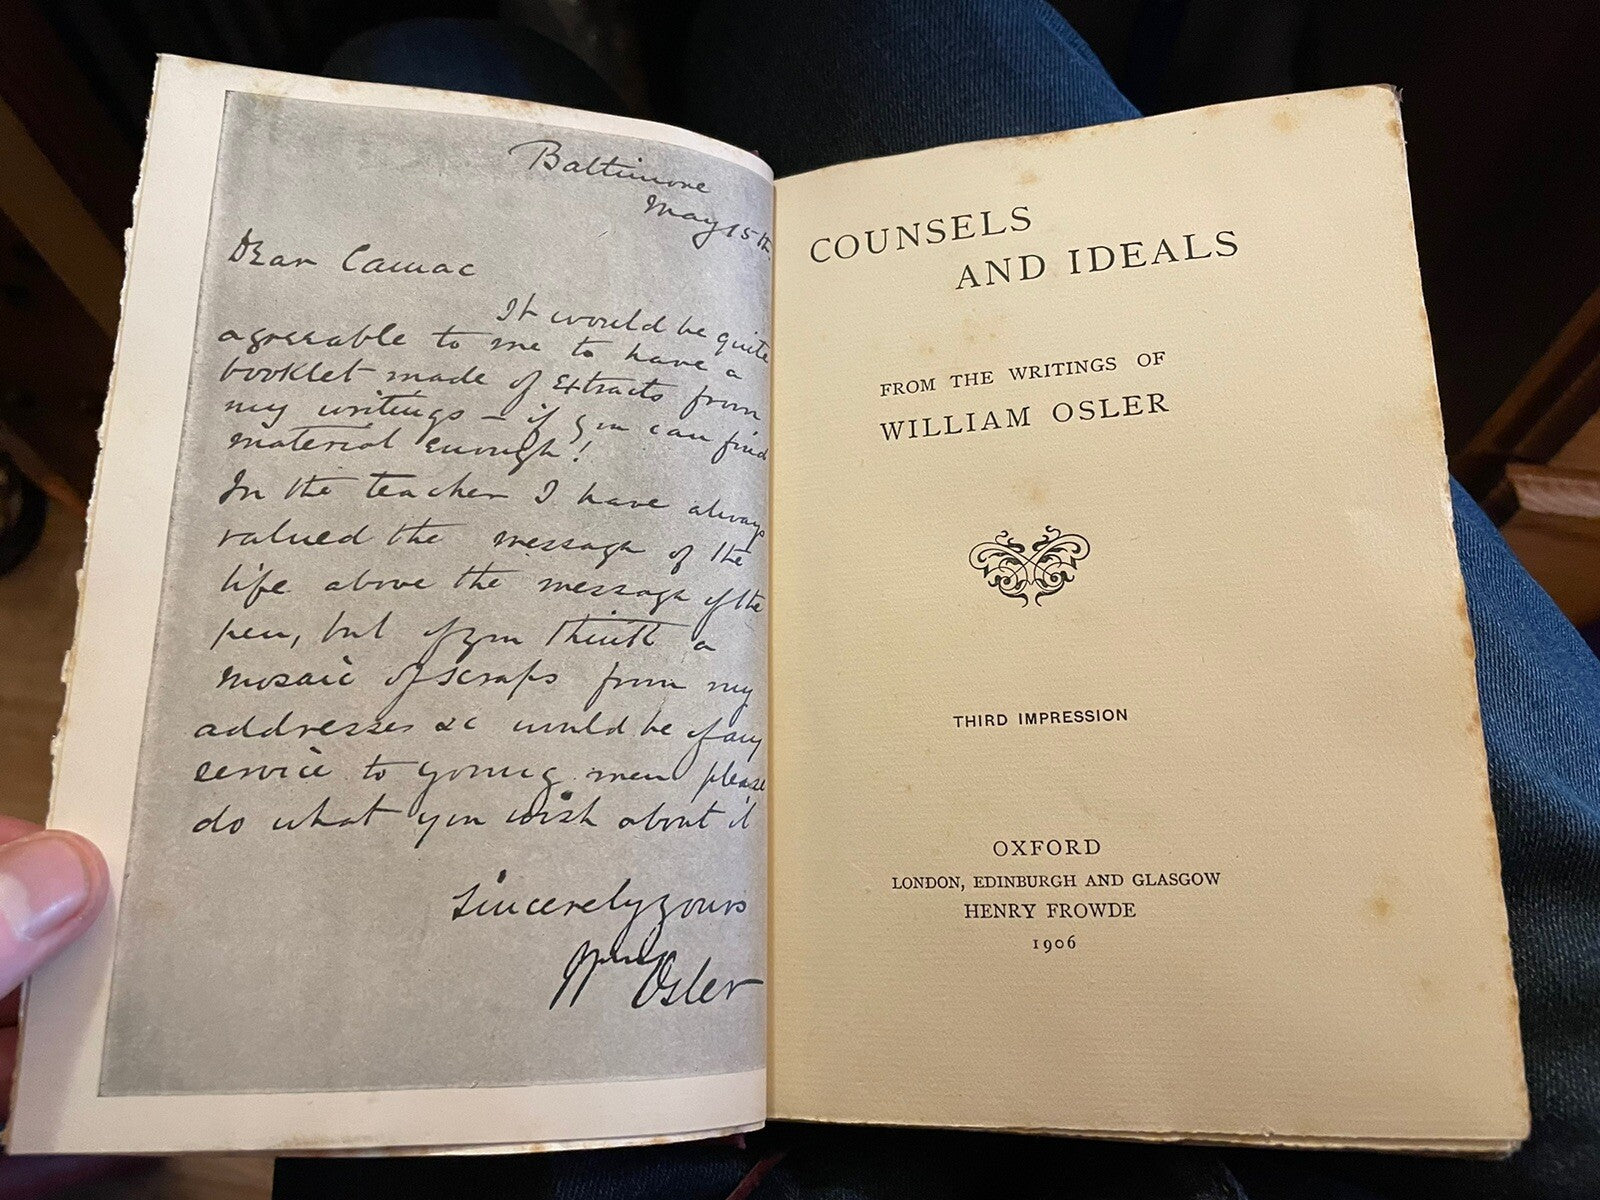 Baltimore
May 15th
Dear Camac
It would be quite
agreeable to me to have a
booklet made of Extracts from
my writings – if you can find
material enough!
In the teacher I have always
valued the message of the
life above the message of the
pen, but if you think a
mosaic of scraps from my
addresses &c would be of any
service to young men please
do what you wish about it
Sincerely yours
Wm Osler
COUNSELS
AND IDEALS
FROM THE WRITINGS OF
WILLIAM OSLER
THIRD IMPRESSION
OXFORD
LONDON, EDINBURGH AND GLASGOW
HENRY FROWDE
1906